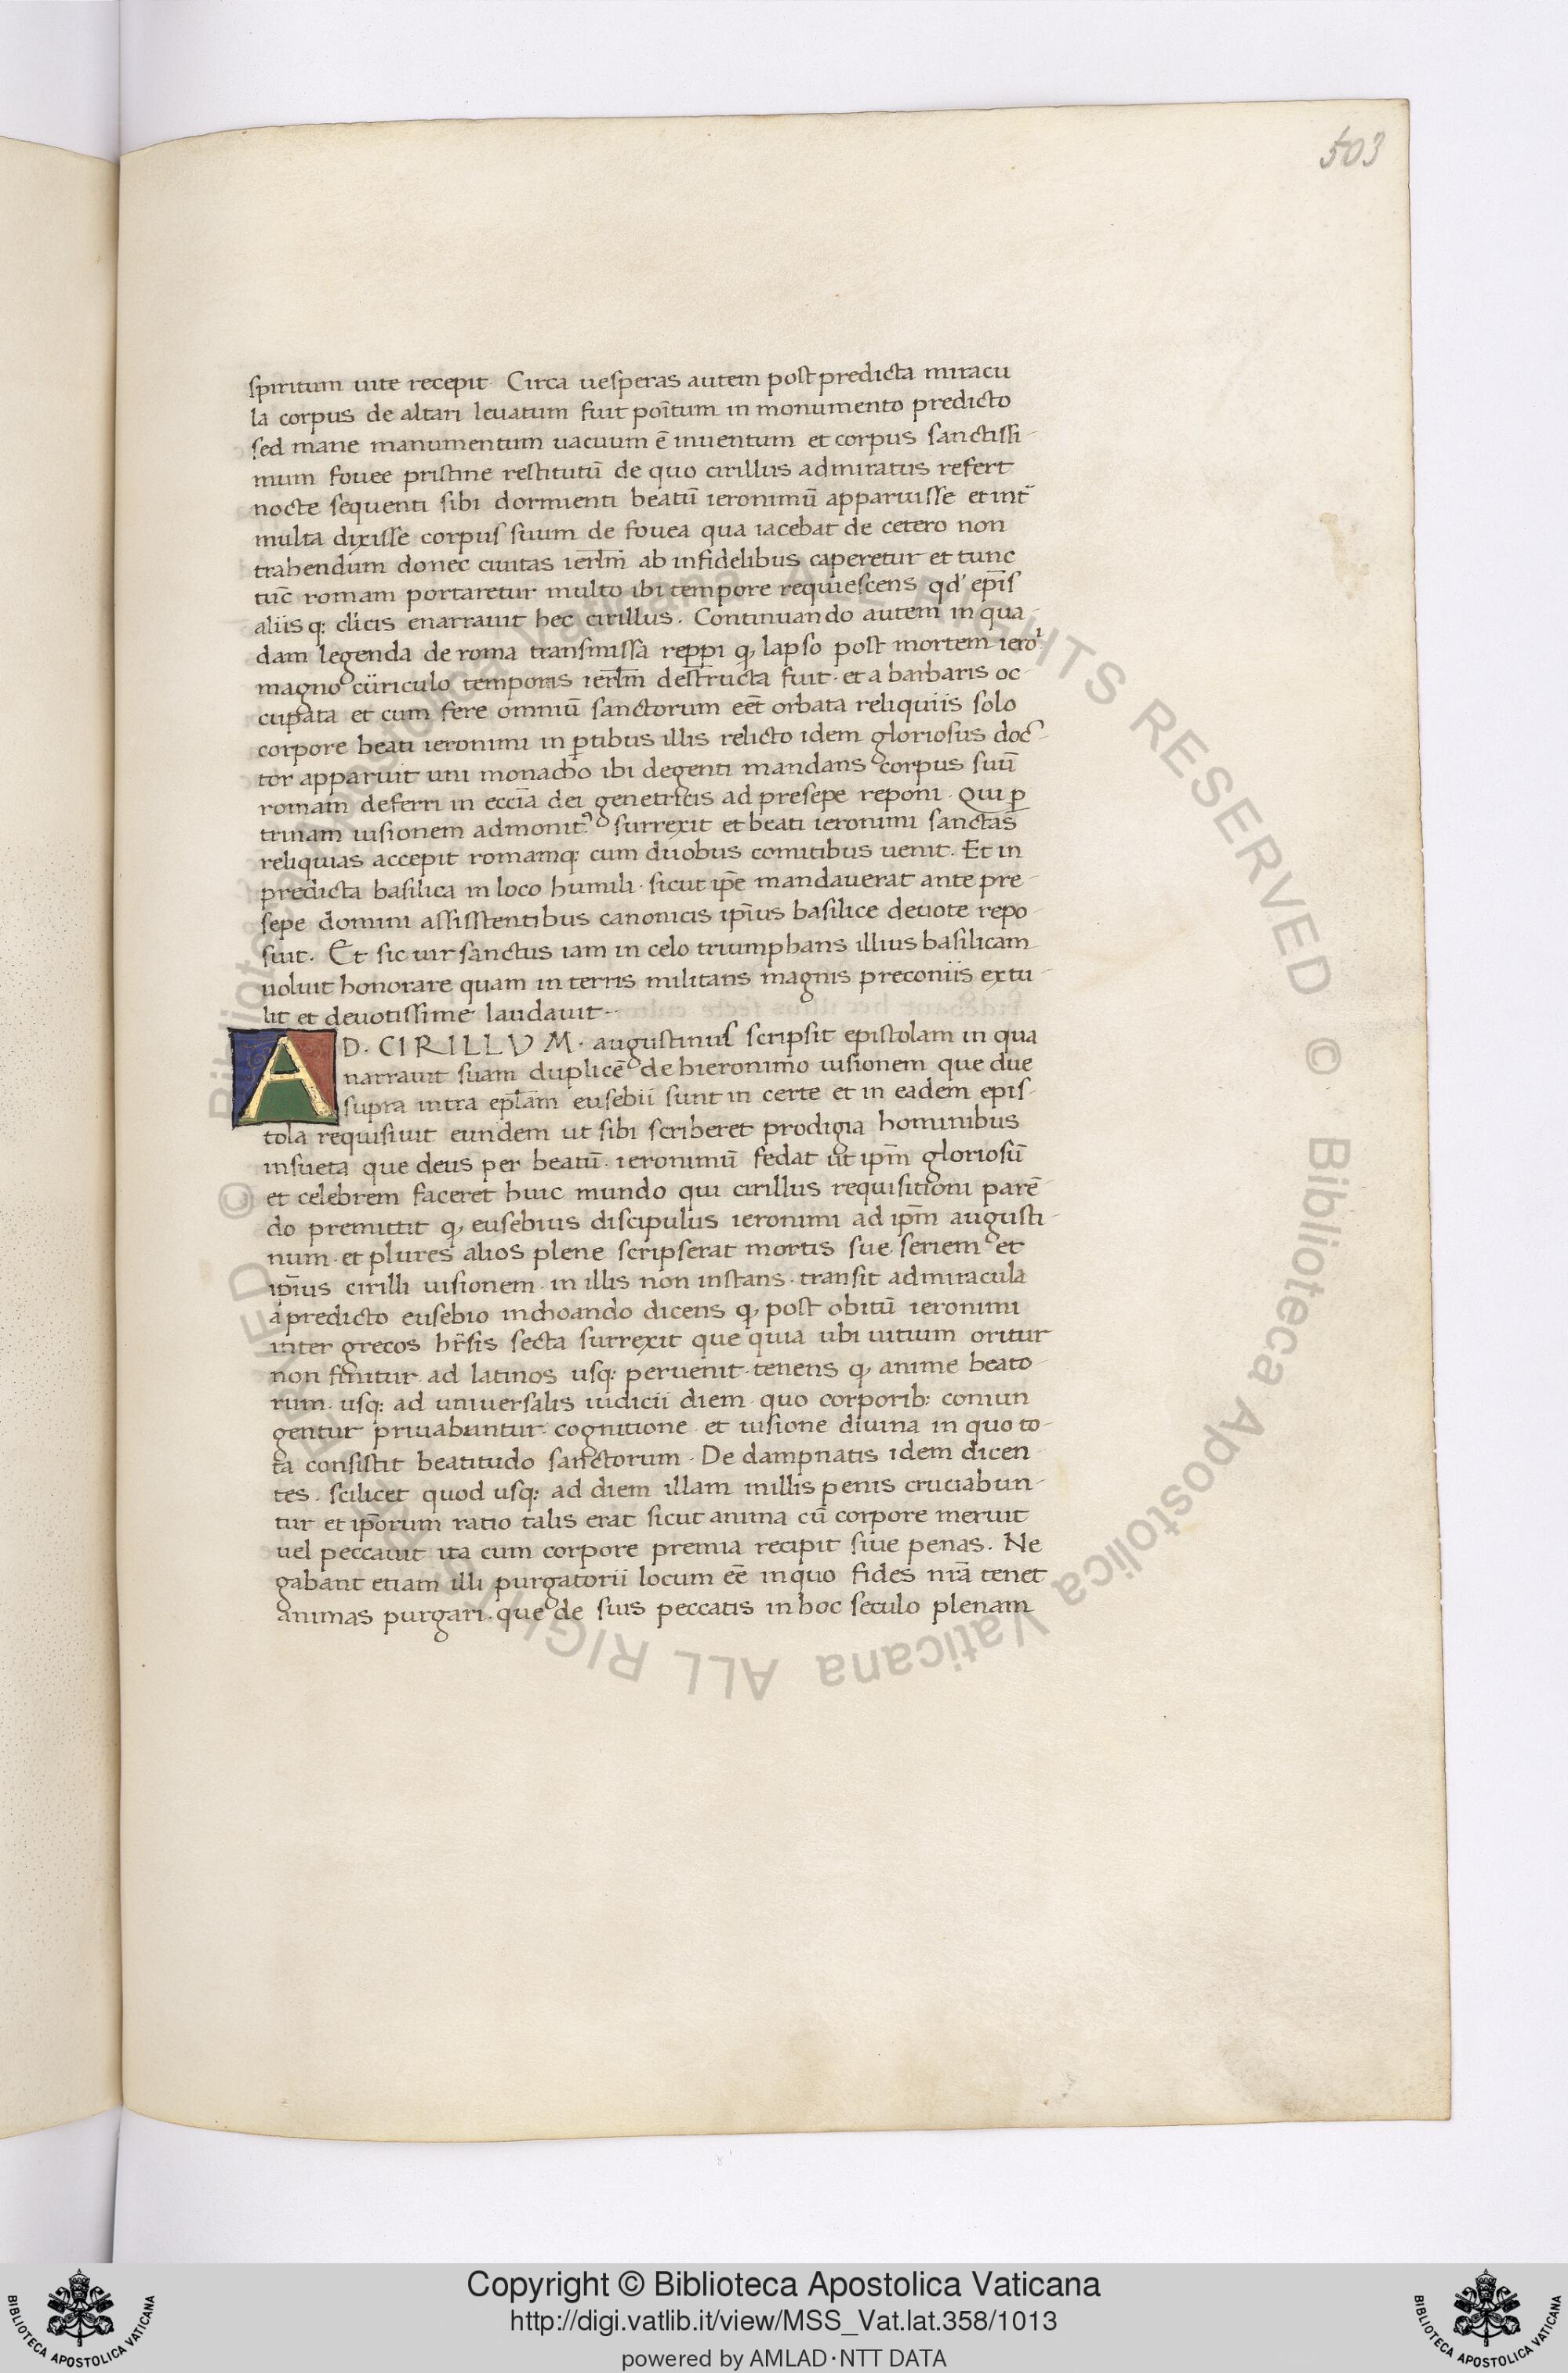 503
spiritum uite recepit. Circa uesperas autem post predicta miracu
la corpus de altari leuatum fuit poītum in monumento predicto
sed mane manumentum uacuum ē inuentum et corpus sanctissi-
mum fouee pristine restitutū de quo cirillus admiratus refert
nocte sequenti sibi dormienti beatū ieronimū apparuisse et int̄
multa dixisse corpus suum de fouea qua iacebat de cetero non
trahendum donec ciuitas ierl̄m ab infidelibus caperetur et tunc
tūc romam portaretur multo ibi tempore requiescens qd' ep̄is
aliis q: cl̄icis enarrauit hec cirillus. Continuando autem in qua-
dam legenda de roma transmissa reppi q, lapso post mortem iero¹
magno cūriculo temporis ierl̄m destructa fuit. et a barbaris oc-
cupata et cum fere omniū sanctorum eēt orbata reliquiis solo
corpore beati ieronimi in ꝑtibus illis relicto idem gloriosus doc-
tor apparuit uni monacho ibi degenti mandans corpus suū
romam deferri in eccīa dei genetricis ad presepe reponi. Qui ꝑ
trinam uisionem admonit⁹ surrexit et beati ieronimi sanctas
reliquias accepit romamq: cum duobus comitibus uenit. Et in
predicta basilica in loco humili. sicut ip̄e mandauerat ante pre-
sepe domini assisstentibus canonicis ip̄ius basilice deuote repo-
siut. Et sic uir sanctus iam in celo triumphans illius basilicam
uoluit honorare quam in terris militans magnis preconiis extu-
lit et deuotissime laudauit.
AD. CIRILLVM. augustinus scripsit epistolam in qua
narrauit suam duplicē de hieronimo uisionem que due
supra intra epl̄am eusebii sunt in certe et in eadem epis-
tola requisiuit eundem ut sibi scriberet prodigia hominibus
insueta que deus per beatū. ieronimū fedat ut ip̄m gloriosū
et celebrem faceret huic mundo qui cirillus requisitioni parē-
do premittit q, eusebius discipulus ieronimi ad ip̄m augusti-
num. et plures alios plene scripserat mortis sue. seriem et
ip̄ius cirilli uisionem. in illis non instans. transit ad miracula
a predicto eusebio inchoando dicens q, post obitū ieronimi
inter grecos hr̄sis secta surrexit que quia ubi uitium oritur
non finitur. ad latinos usq: peruenit. tenens q, anime beato-
rum. usq: ad uniuersalis iudicii diem. quo corporib: comun
gentur priuabuntur. cognitione. et uisione diuina in quo to-
ta consistit beatitudo sanctorum. De dampnatis idem dicen
tes. scilicet quod usq: ad diem illam millis penis cruciabun-
tur et ip̄orum ratio talis erat sicut anima cū corpore meruit
uel peccauit ita cum corpore premia recipit siue penas. Ne
gabant etiam illi purgatorii locum eē in quo fides nr̄a tenet
animas purgari. que de suis peccatis in hoc seculo plenam
© Biblioteca Apostolica Vaticana ALL RIGHTS RESERVED
© Biblioteca Apostolica Vaticana ALL RIGHTS RESERVED
BIBLIOTECA APOSTOLICA VATICANA
Copyright © Biblioteca Apostolica Vaticana
http://digi.vatlib.it/view/MSS_Vat.lat.358/1013
powered by AMLAD·NTT DATA
BIBLIOTECA APOSTOLICA VATICANA